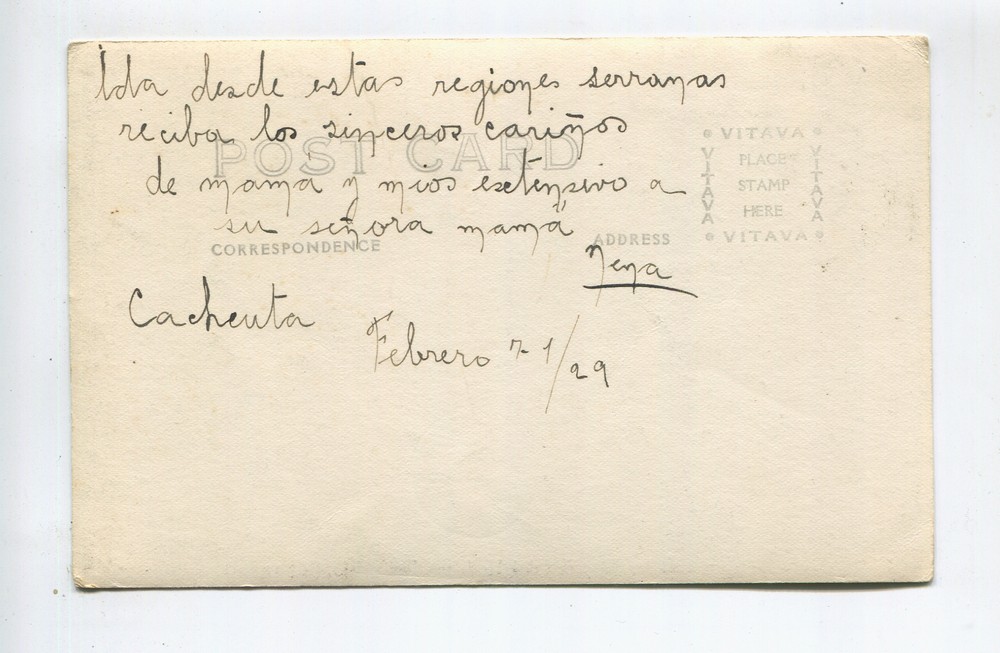 Ida desde estas regiones serranas
reciba los sinceros cariños
POST CARD
de mamá y mios extensivo a
su señora mamá
CORRESPONDENCE
ADDRESS
Nena
Cacheuta
Febrero 7 1/29
VITAVA
VITAVA
PLACE
STAMP
HERE
VITAVA
VITAVA